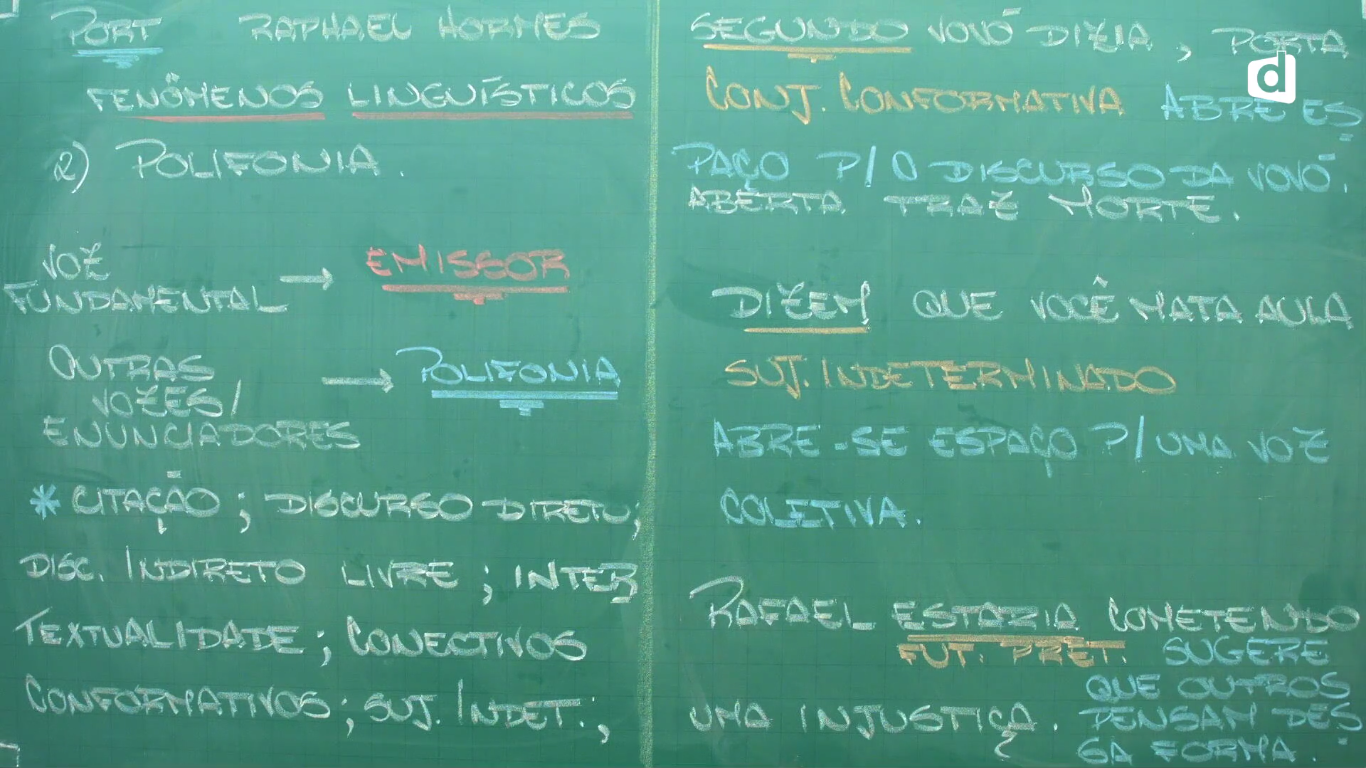 PORT RAPHAEL HORMES
FENÔMENOS LINGUÍSTICOS
2) POLIFONIA.
VOZ
FUNDAMENTAL → EMISSOR
OUTRAS
VOZES/ → POLIFONIA
ENUNCIADORES
* CITAÇÃO; DISCURSO DIRETO;
DISC. INDIRETO LIVRE; INTER
TEXTUALIDADE; CONECTIVOS
CONFORMATIVOS; SUJ. INDET.;
SEGUNDO VOVÓ DIZIA, PORTA
d
CONJ. CONFORMATIVA ABRE ES
PAÇO P/ O DISCURSO DA VOVÓ.
ABERTA TRAZ MORTE.
DIZEM QUE VOCÊ MATA AULA
SUJ. INDETERMINADO
ABRE-SE ESPAÇO P/ UMA VOZ
COLETIVA.
RAFAEL ESTARIA COMETENDO
FUT. PRET. SUGERE
QUE OUTROS
UMA INJUSTIÇA. PENSAM DES
SA FORMA.